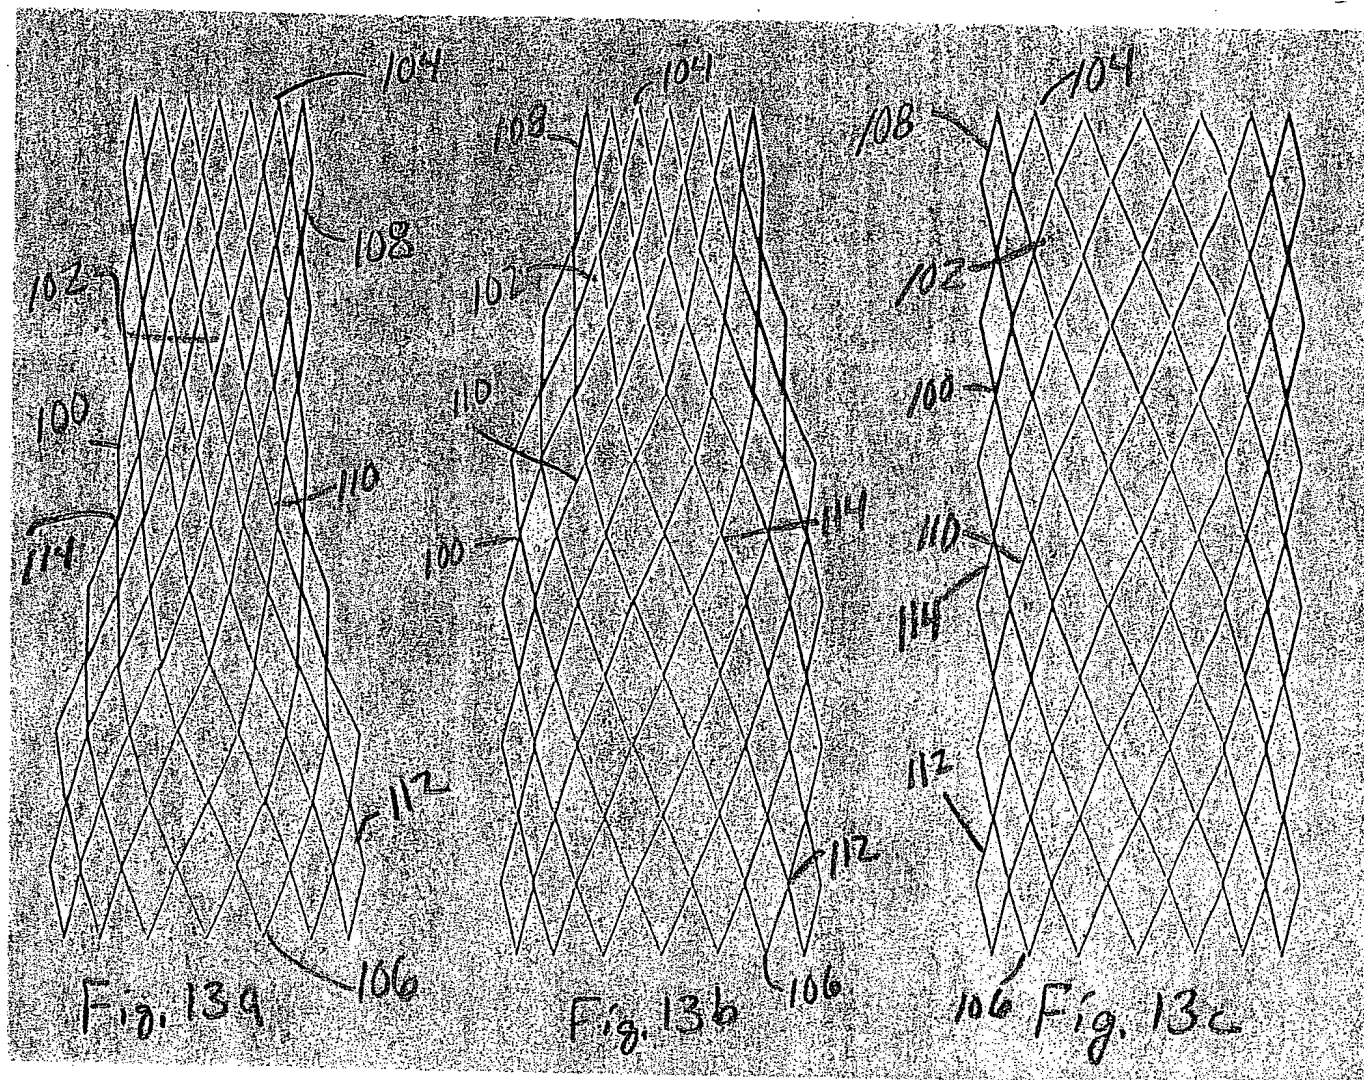 104
108
102
100
110
114
112
106
Fig. 13a
104
108
102
110
114
100
112
106
Fig. 13b
104
108
102
100
110
114
112
106
Fig. 13c